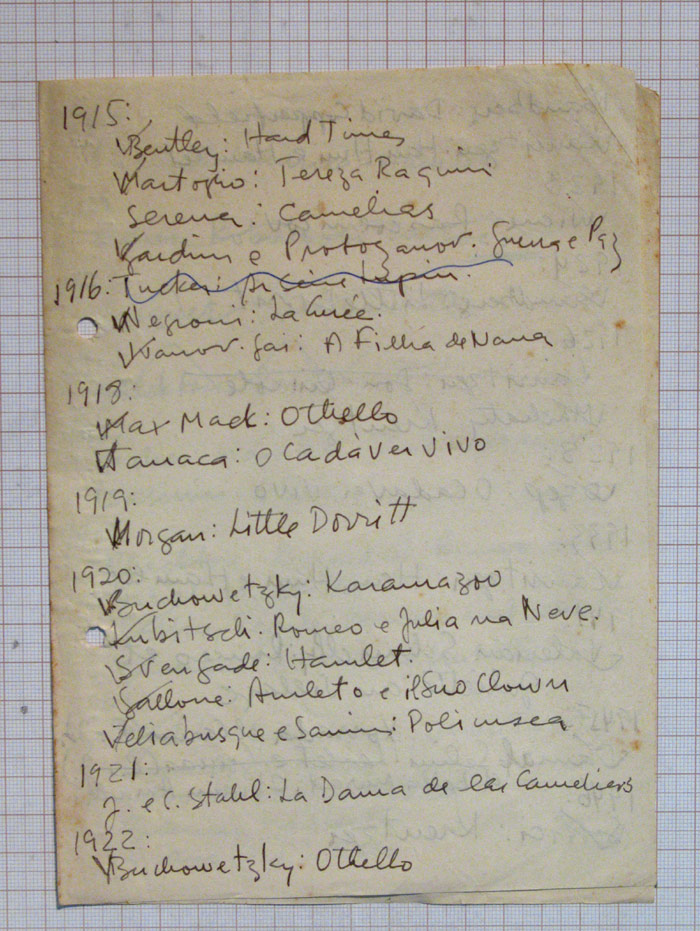 1915:
Bentley: Hard Times
Martoglio: Tereza Raquin
Serena: Camelias
Gardin e Protozanov. Guerra e Paz
1916: Tucker: Arsène Lupin.
Negroni: La Curée.
Ivanov-Gai: A Filha de Nana
1918:
Max Mack: Othello
Tanaca: O Cadáver vivo
1919:
Morgan: Little Dorritt
1920:
Buchowetzky: Karamazov
Lubitsch. Romeo e Julia na Neve.
Svengade: Hamlet.
Gallone: Amleto e il suo Clown
Veliabusque e Sanin: Policusca
1921:
J. e C. Stahl: La Dama de las Cameliers
1922:
Buchowetzky: Othello